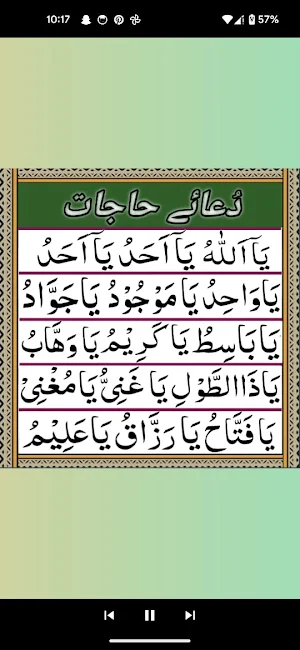 10:17 57%
دُعائے حاجات
يَآ اَللّٰهُ يَآ اَحَدُ يَآ اَحَدُ
يَا وَاحِدُ يَا مَوْجُوْدُ يَا جَوَّادُ
يَا بَاسِطُ يَا كَرِيْمُ يَا وَهَّابُ
يَا ذَا الطَّوْلِ يَا غَنِيُّ يَا مُغْنِيْ
يَا فَتَّاحُ يَا رَزَّاقُ يَا عَلِيْمُ